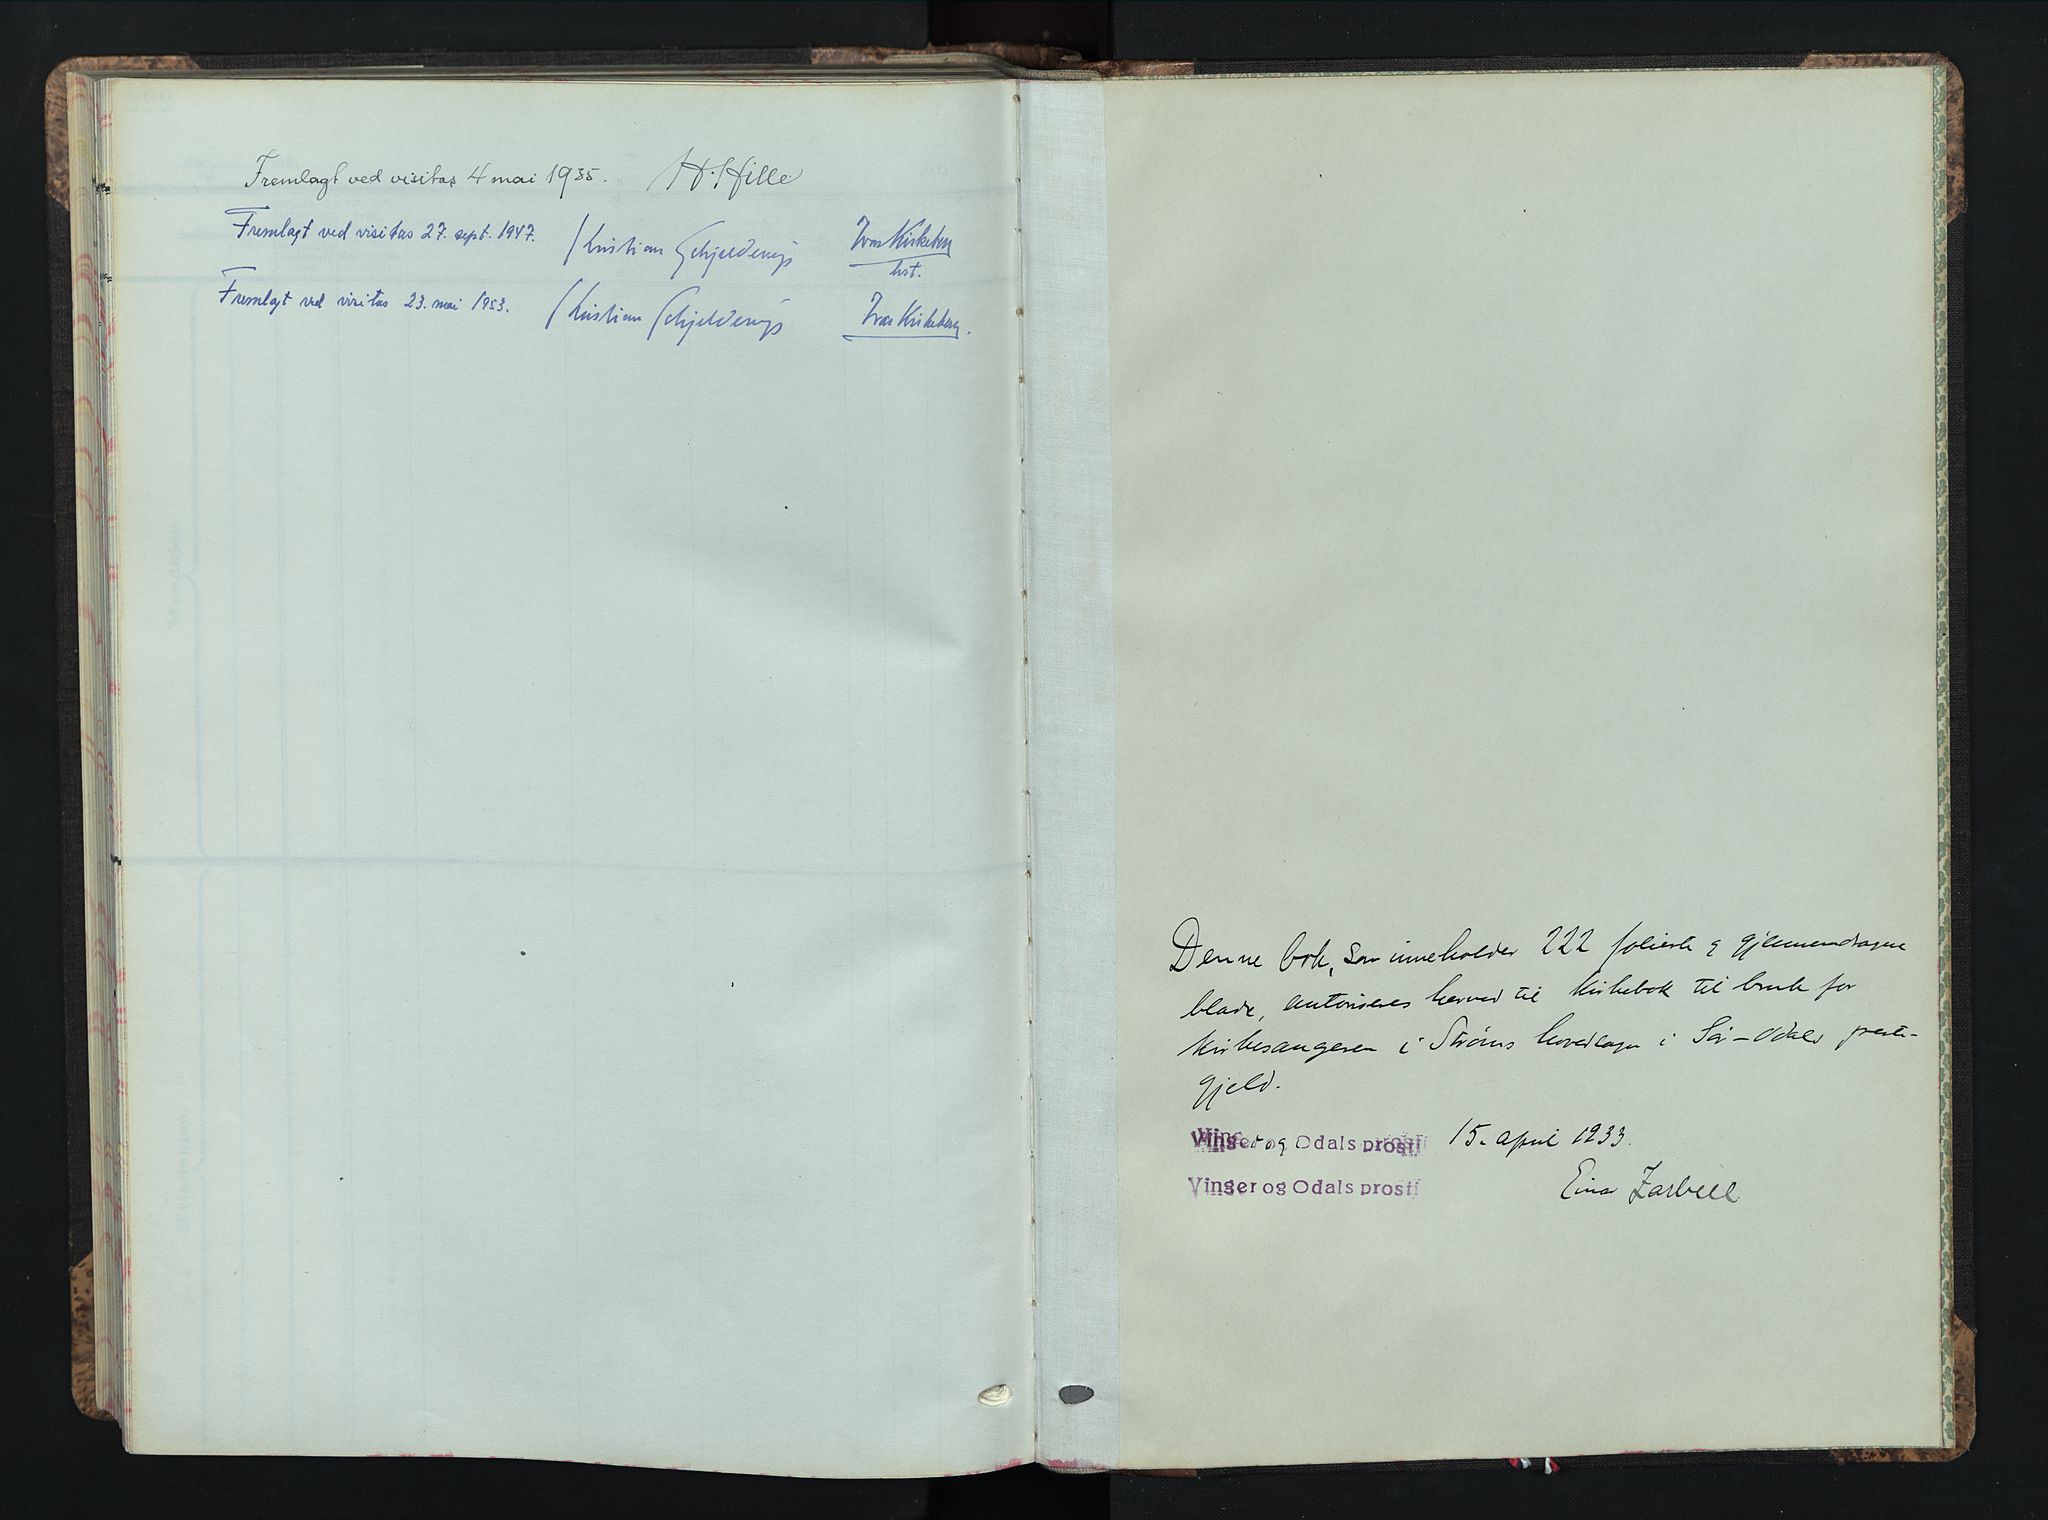 Fremlagt ved visitas 4 mai 1935. H. Hille
Fremlagt ved visitas 27. sept. 1947. Kristian Schjelderup Ivar Kirkeberg
hst.
Fremlagt ved visitas 23. mai 1953. Kristian Schjelderup Ivar Kirkeberg.
Denne bok, som inneholder 222 folierte og gjennemdragne
blade, autoriseres herved til kirkebok til bruk for
kirkesangeren i Strøms hovedsogn i Sør-Odal preste-
gjeld.
Vinger og Odals prosti 15. april 1933.
Vinger og Odals prosti Einar